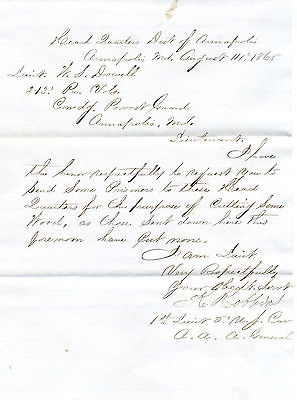 Head Quarters Dist of Annapolis
Annapolis Md, August 14th 1865
Lieut. W. S. Dowell
213th Pa Vols.
Comdg. Provost Guard
Annapolis, Md.
Lieutenant.
I have
the honor respectfully to request you to
Send Some Prisoners to these Head
Quarters for the purpose of Cutting Some
Wood, as those Sent down here this
forenoon have Cut none.
I am Lieut
Very Respectfully
Your Obedt. Servt
1st Lieut 5" Cav
A. A. A. General.